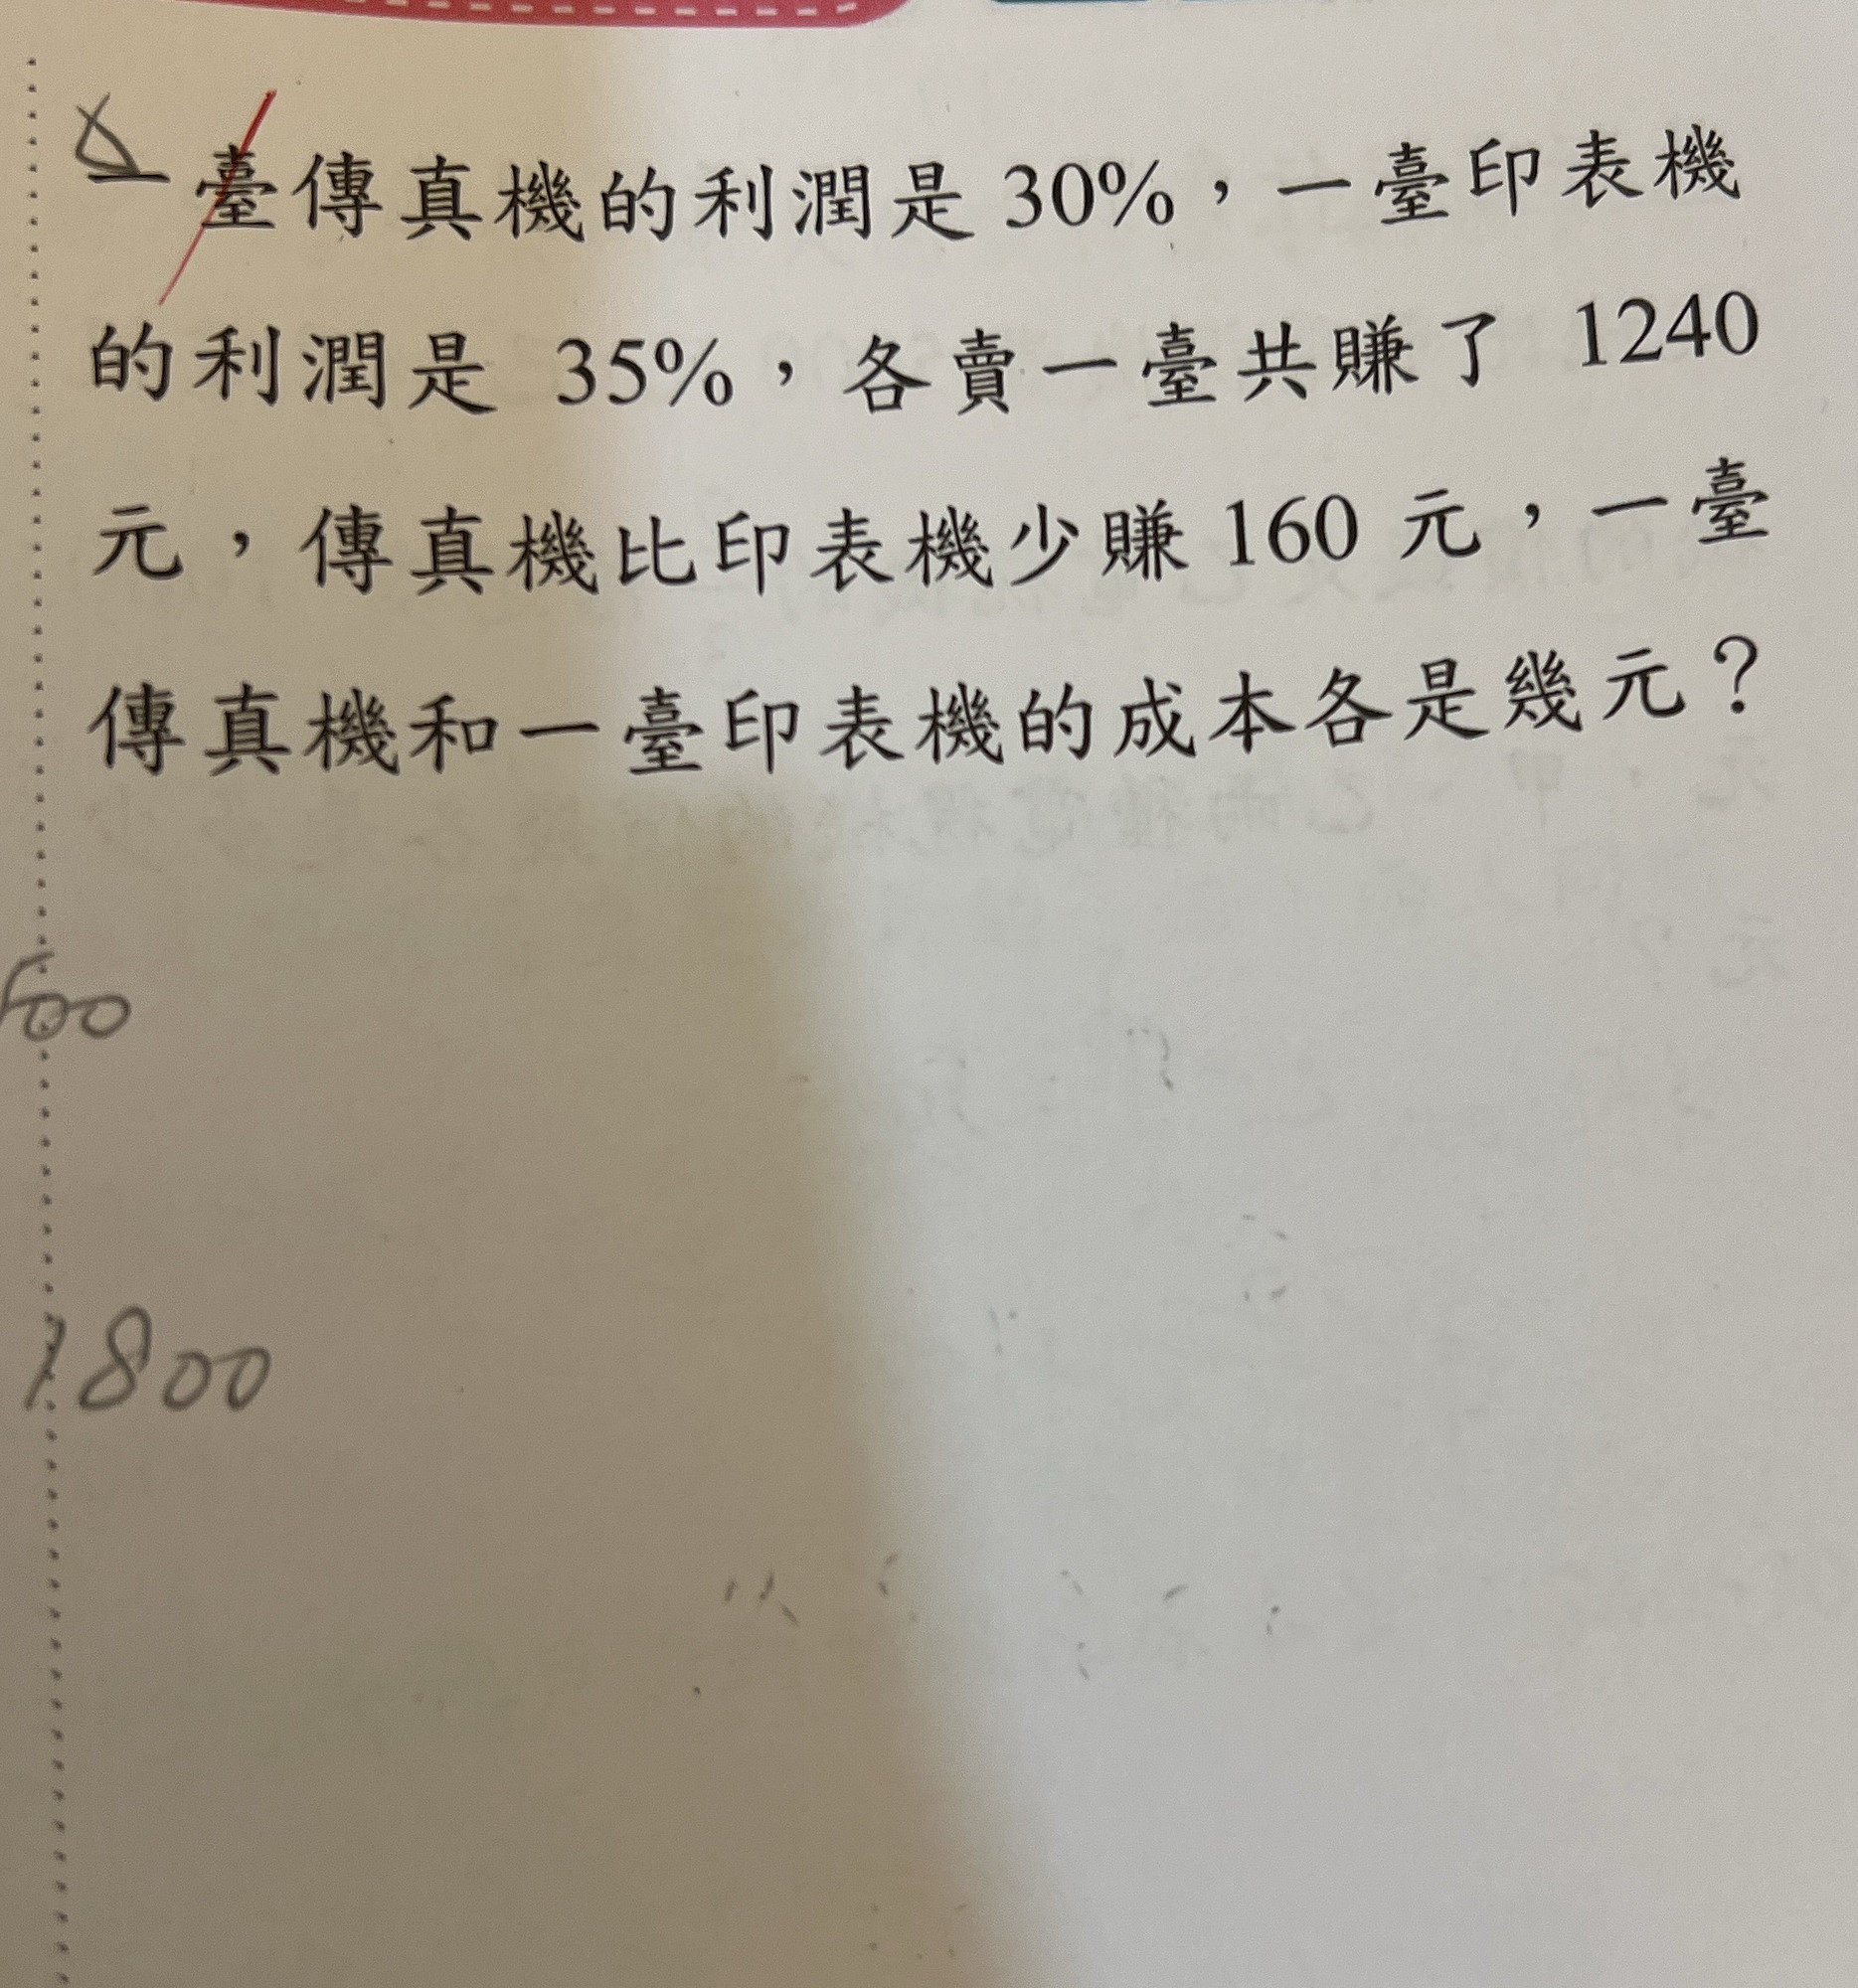 一臺傳真機的利潤是 30%，一臺印表機
的利潤是 35%，各賣一臺共賺了 1240
元，傳真機比印表機少賺 160 元，一臺
傳真機和一臺印表機的成本各是幾元？
1800